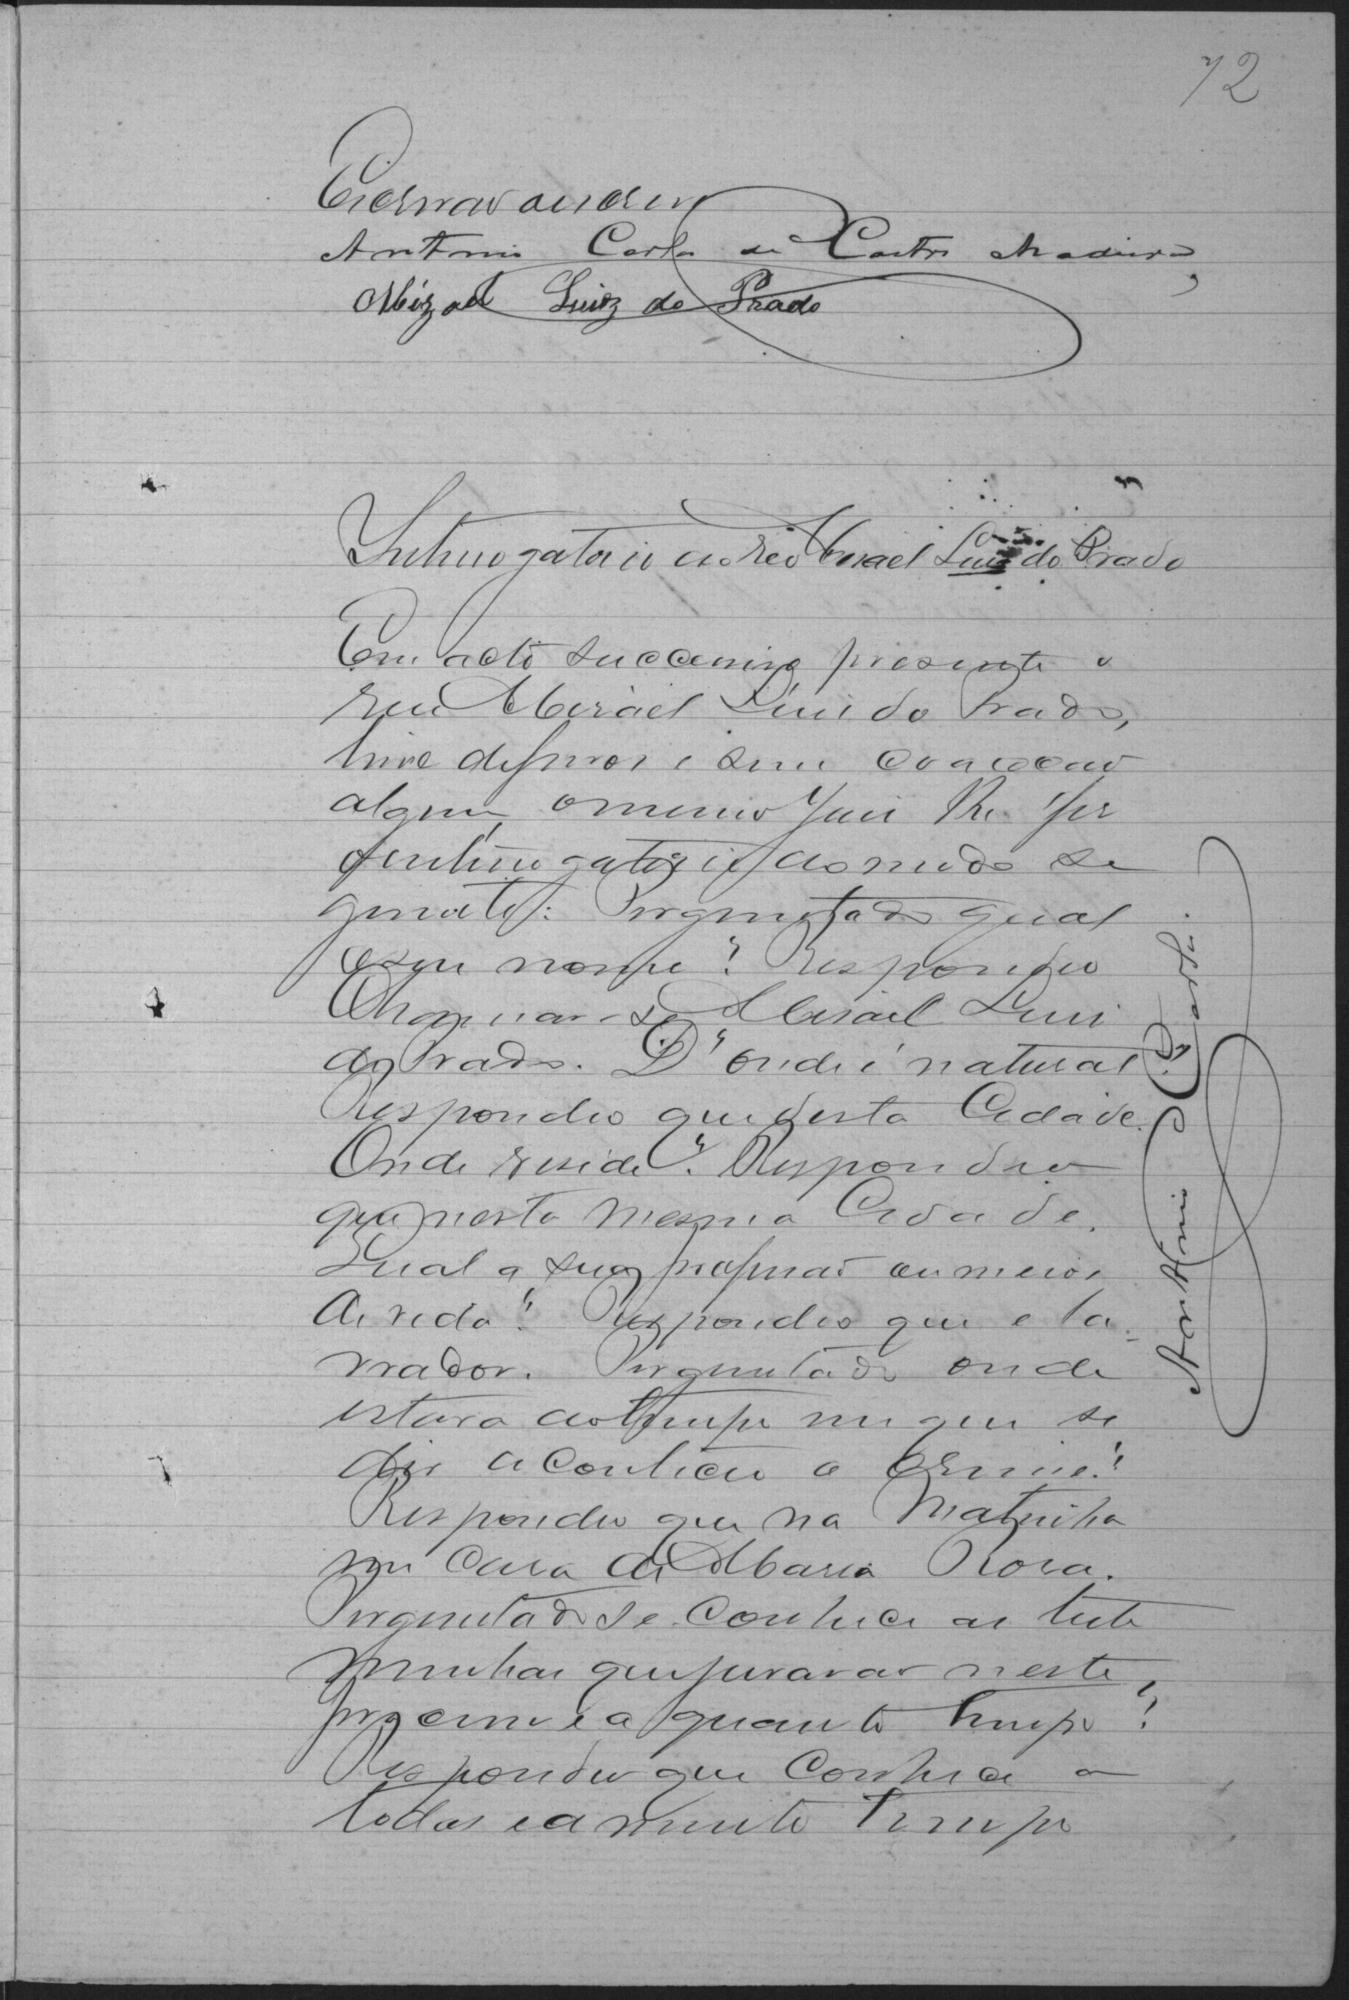 72
Escrivão escrevi
Antonio Carlos de Castro Madeira
Mizael Luiz do Prado
Interrogatorio ao reo Misael Luis do Prado
Em acto successivo presente o
reu Misael Luis do Prado,
livre de ferros e sem coacção
alguma, o mesmo Juis lhe fes
o interrogatorio do modo se
guinte: Perguntado qual
o seu nome? Respondeo
Chamar-se Misael Luis
do Prado. D'onde é natural?
Respondeo que desta Cidade.
Onde reside? Respondeo
que nesta mesma Cidade.
Qual a sua profissão ou meios
de vida? Respondeo que é la-
vrador. Perguntado onde
estava ao tempo em que se
dis aconteceu o crime?
Respondeu que na Matinha
em casa de Maria Rosa.
Perguntado se conhece as teste
munhas que juraram neste
processo e a quanto tempo?
Respondeu que conhece a
todas e a muito tempo
Antonio C. Castro.